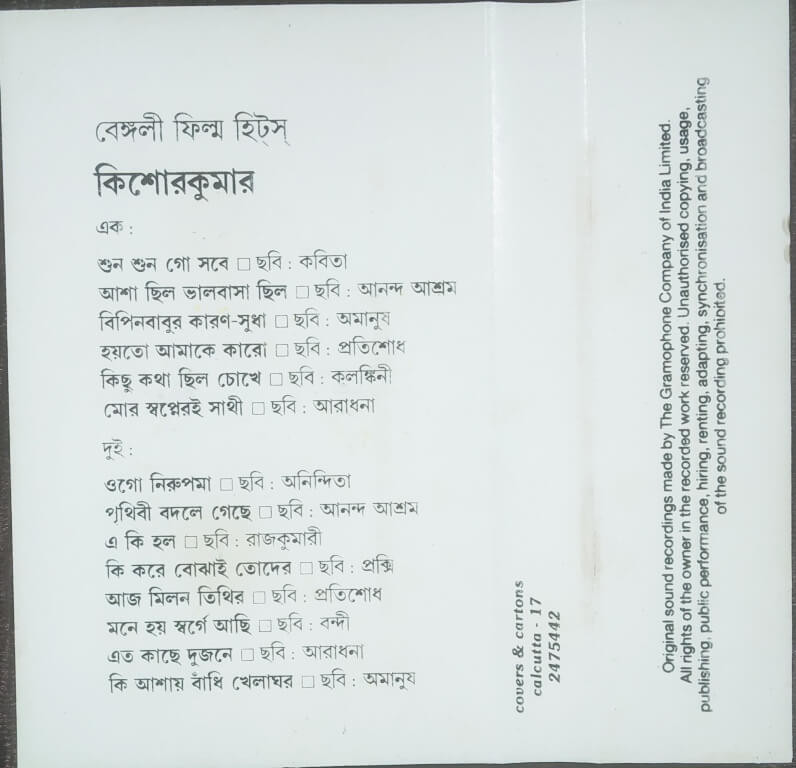 বেঙ্গলী ফিল্ম হিট্‌স্
কিশোরকুমার
এক :
শুন শুন গো সবে □ ছবি : কবিতা
আশা ছিল ভালবাসা ছিল □ ছবি : আনন্দ আশ্রম
বিপিনবাবুর কারণ-সুধা □ ছবি : অমানুষ
হয়তো আমাকে কারো □ ছবি : প্রতিশোধ
কিছু কথা ছিল চোখে □ ছবি : কলঙ্কিনী
মোর স্বপ্নেরই সাথী □ ছবি : আরাধনা
দুই :
ওগো নিরুপমা □ ছবি : অনিন্দিতা
পৃথিবী বদলে গেছে □ ছবি : আনন্দ আশ্রম
এ কি হল □ ছবি : রাজকুমারী
কি করে বোঝাই তোদের □ ছবি : প্রক্সি
আজ মিলন তিথির □ ছবি : প্রতিশোধ
মনে হয় স্বর্গে আছি □ ছবি : বন্দী
এত কাছে দুজনে □ ছবি : আরাধনা
কি আশায় বাঁধি খেলাঘর □ ছবি : অমানুষ
covers & cartons
calcutta - 17
2475442
Original sound recordings made by The Gramophone Company of India Limited.
All rights of the owner in the recorded work reserved. Unauthorised copying, usage,
publishing, public performance, hiring, renting, adapting, synchronisation and broadcasting
of the sound recording prohibited.